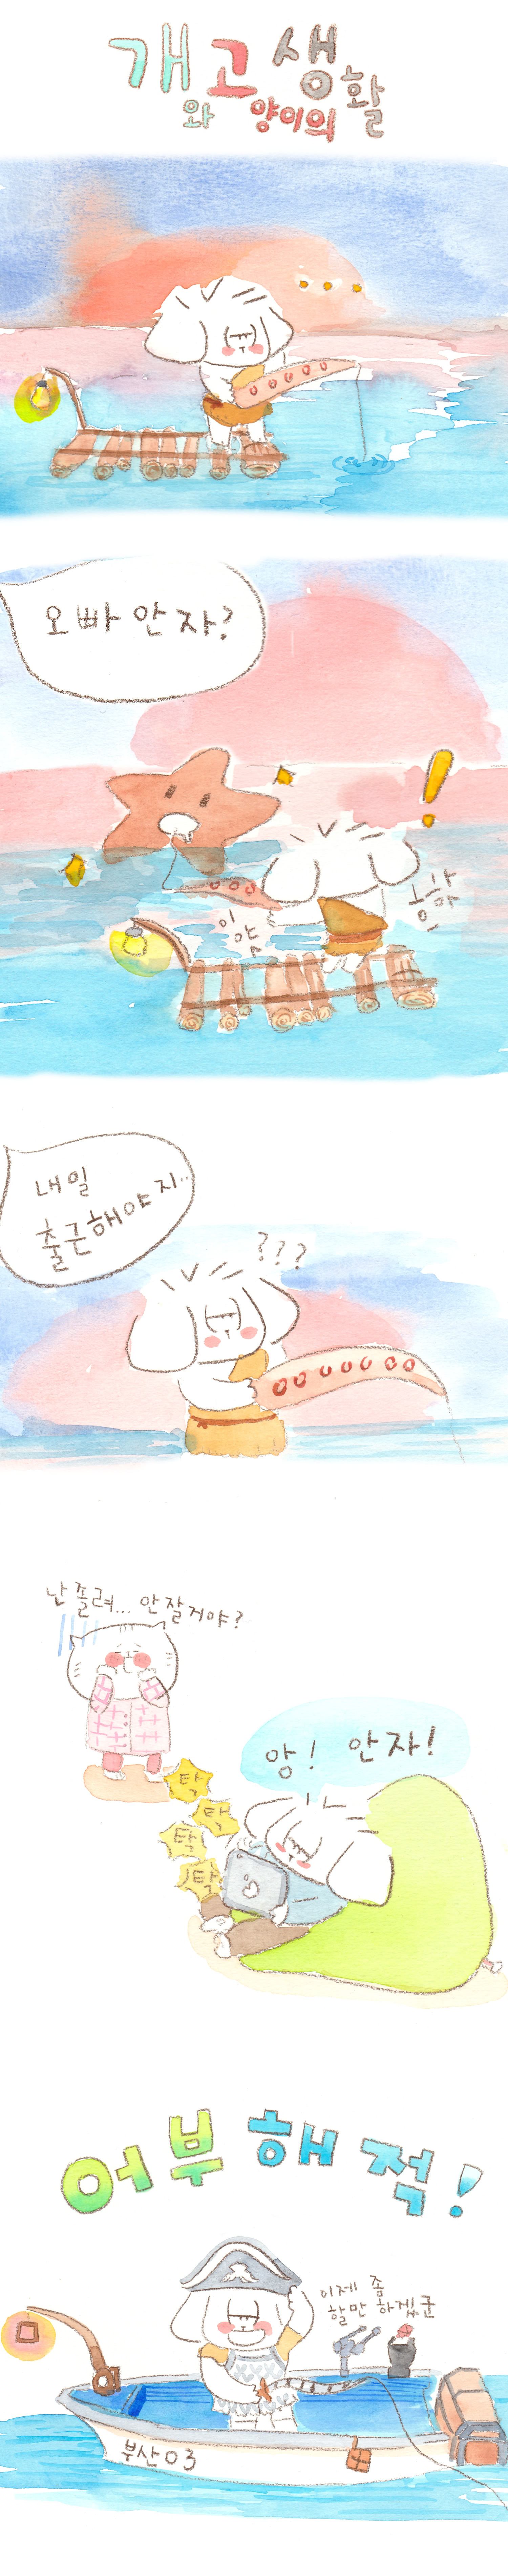 개와 고양이의 생활
오빠 안 자?
이얏
흐앗
내일
출근해야지..
???
난 졸려... 안잘거야?
앙! 안자!
탁
탁
탁
탁
어부해적!
이제 좀
할만 하겠군
부산03